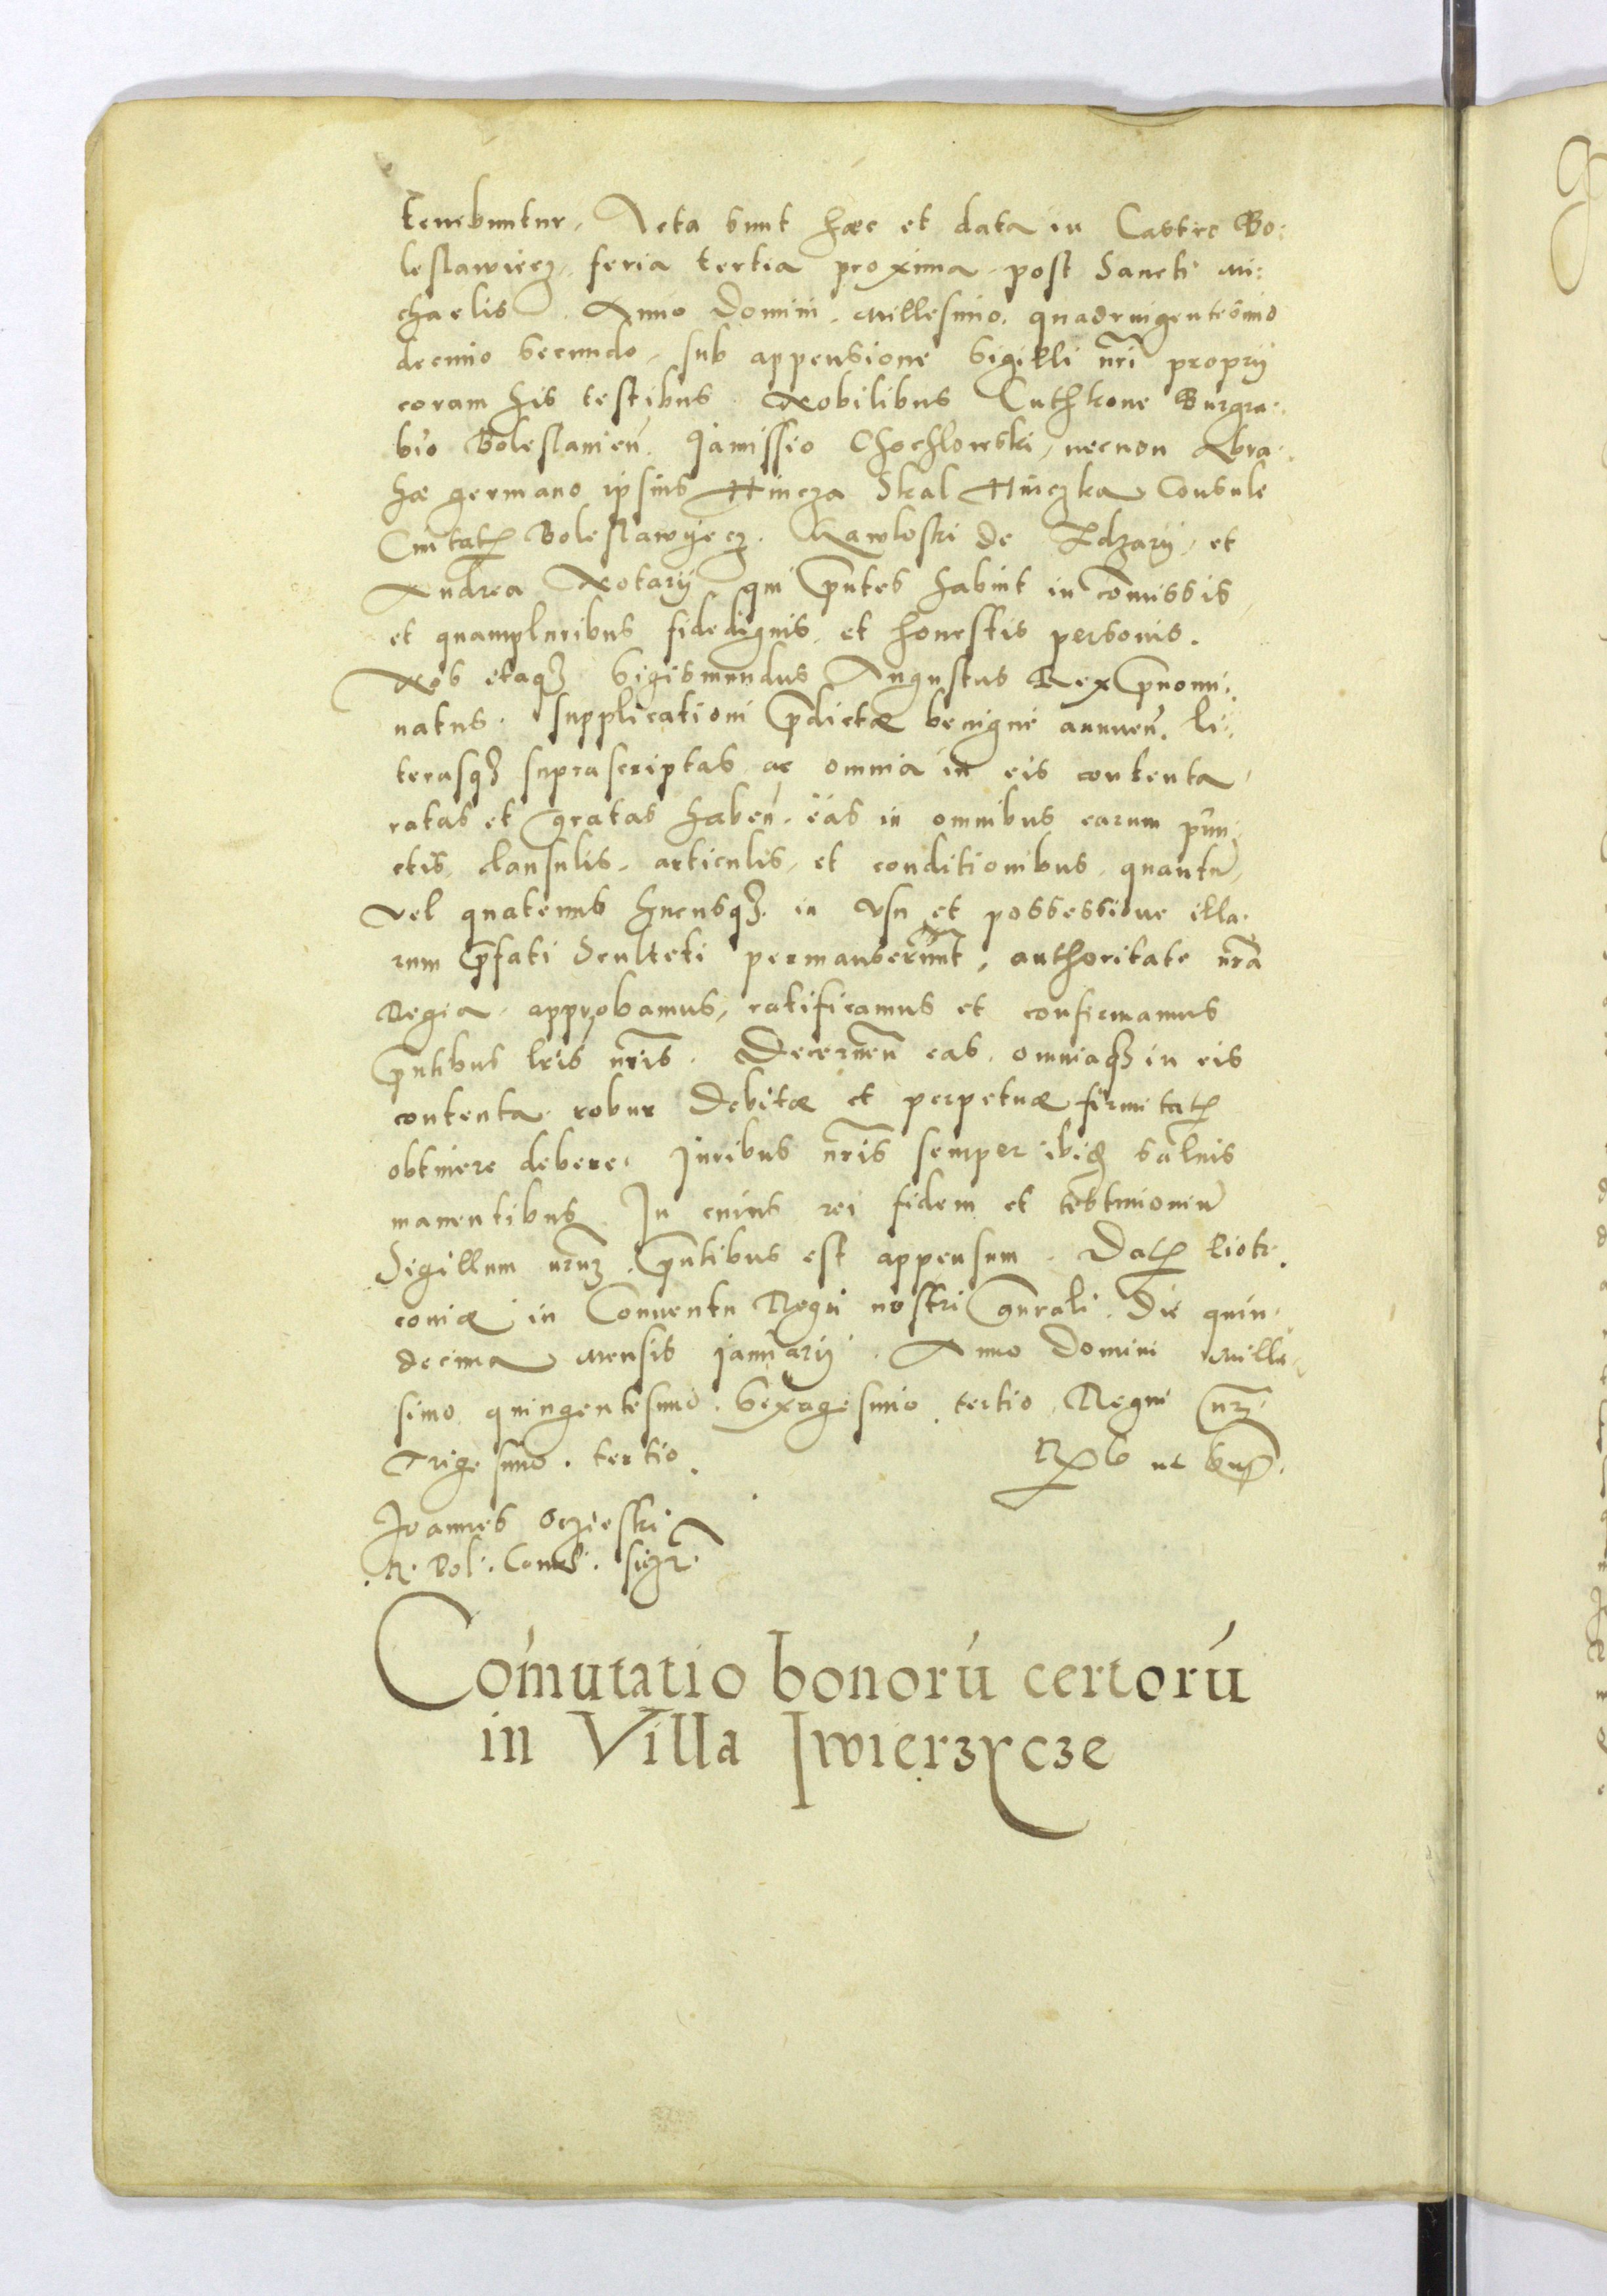 tenebuntur. Acta sunt hæc et data in Castro Bo:
leslawiecz, feria tertia proxima post Sancti Mi:
chaelis. Anno Domini. Millesimo. quadringentesimo
decimo secundo, sub appensione Sigilli nr̃i proprij
coram his testibus. Nobilibus Cuthkone Burgra.
bio Boleslauień. Janissio Chochlowski, necnon Abra.
hæ germano ipsius Hincza Skal Hinczka Consule
Ciuitatꝭ Boleslawyecz. Kawloski de Zdzary, et
Andrea Notarij qui p̃ntes habuit in com̃issis
et quampluribus fidedignis, et honestis personis.
Nos etaqꝫ Sigismundus Augustus Rex p̃nomi:
natus. supplicationi p̃dictæ benigne annueń. li:
terasqꝫ suprascriptas ac omnia in eis contenta,
ratas et gratas habeń. eas in omnibus earum pun:
ctis, clausulis, articulis, et conditionibus, quantũ,
vel quatenus hucusqꝫ. in vsu et possessione illa.
rum p̃fati Sculteti permanserunt, authoritate nr̃a
Regia, approbamus, ratificamus et confirmamus
p̃ntibus lr̃is nr̃is. Decerneñ eas, omniaqꝫ in eis
contenta robur debitæ et perpetuæ firmitatꝭ
obtinere debere. Juribus nr̃is semper ibidꝫ saluis
manentibus. In cuius rei fidem et testimoniũ
Sigillum nr̃uꝫ. p̃ntibus est appensum. Datꝭ Piotr.
couiæ in Conuentu Regni nostri gñrali. Die quin.
decima Mensis Januarij. Anno Domini Mille.
simo quingentesimo. Sexagesimo tertio. Regni nr̃.
Trigesimo. tertio.
Rx̃ S ut sup̃.
Joannes Ocziesski
. R. Pol. Cancel. sigr̃.
Com̃utatio bonorũ certorũ
in Villa Iwierzycze